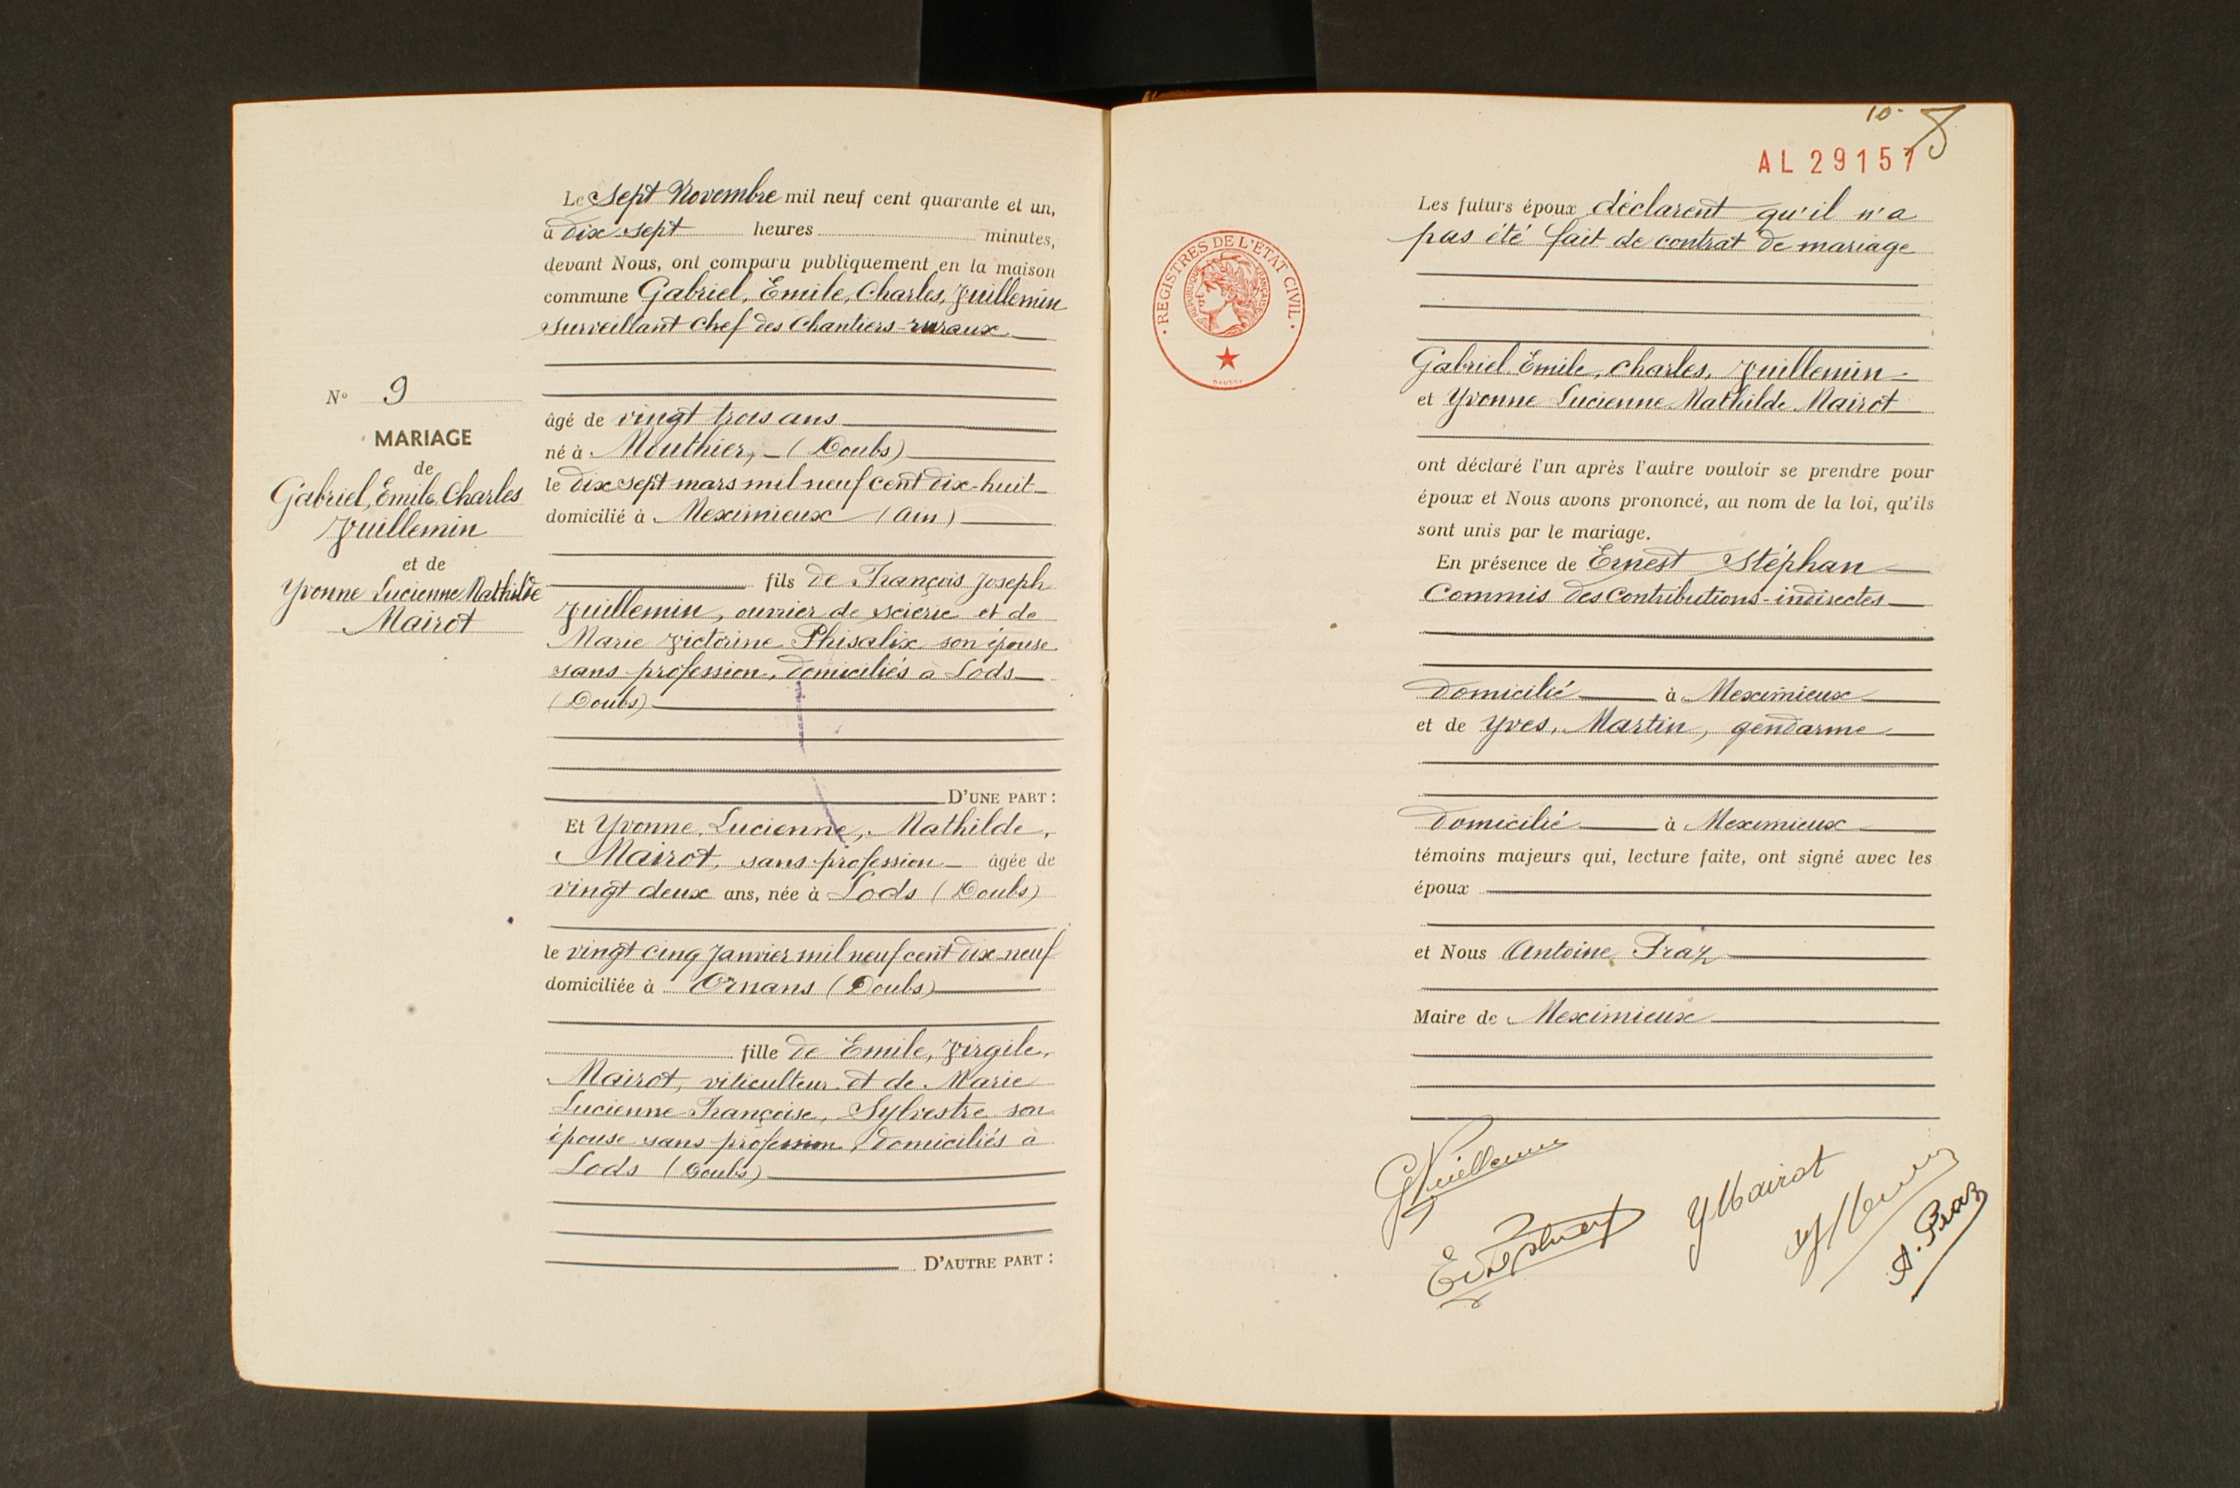 Le Sept Novembre mil neuf cent quarante et un,
à dix-sept heures minutes,
devant Nous, ont comparu publiquement en la maison
commune Gabriel, Emile, Charles, Vuillemin
surveillant chef des Chantiers ruraux
N° 9
MARIAGE
de
Gabriel, Emile, Charles
Vuillemin
et de
Yvonne Lucienne Mathilde
Mairot
âgé de vingt trois ans
né à Mouthier, (Doubs)
le dix sept mars mil neuf cent dix-huit
domicilié à Meximieux (Ain)
fils de François Joseph
Vuillemin, ouvrier de scierie et de
Marie Victorine Phisalix son épouse
sans profession, domiciliés à Lods
(Doubs)
D'UNE PART :
Et Yvonne, Lucienne, Mathilde,
Mairot, sans profession âgée de
vingt deux ans, née à Lods (Doubs)
le vingt cinq Janvier mil neuf cent dix-neuf
domiciliée à Ornans (Doubs)
fille de Emile, Virgile,
Mairot, viticulteur et de Marie
Lucienne Françoise, Sylvestre son
épouse sans profession, domiciliés à
Lods (Doubs)
D'AUTRE PART :
10
8
AL 29157
REGISTRES DE L'ÉTAT CIVIL
RÉPUBLIQUE FRANÇAISE
Les futurs époux déclarent qu'il n'a
pas été fait de contrat de mariage
Gabriel Emile, Charles, Vuillemin
et Yvonne Lucienne Mathilde Mairot
ont déclaré l'un après l'autre vouloir se prendre pour
époux et Nous avons prononcé, au nom de la loi, qu'ils
sont unis par le mariage.
En présence de Ernest Stéphan
Commis des Contributions indirectes
domicilié à Meximieux
et de Yves, Martin, gendarme
domicilié à Meximieux
témoins majeurs qui, lecture faite, ont signé avec les
époux
et Nous Antoine Praz
Maire de Meximieux
GVuillemin
YMairot
A. Praz